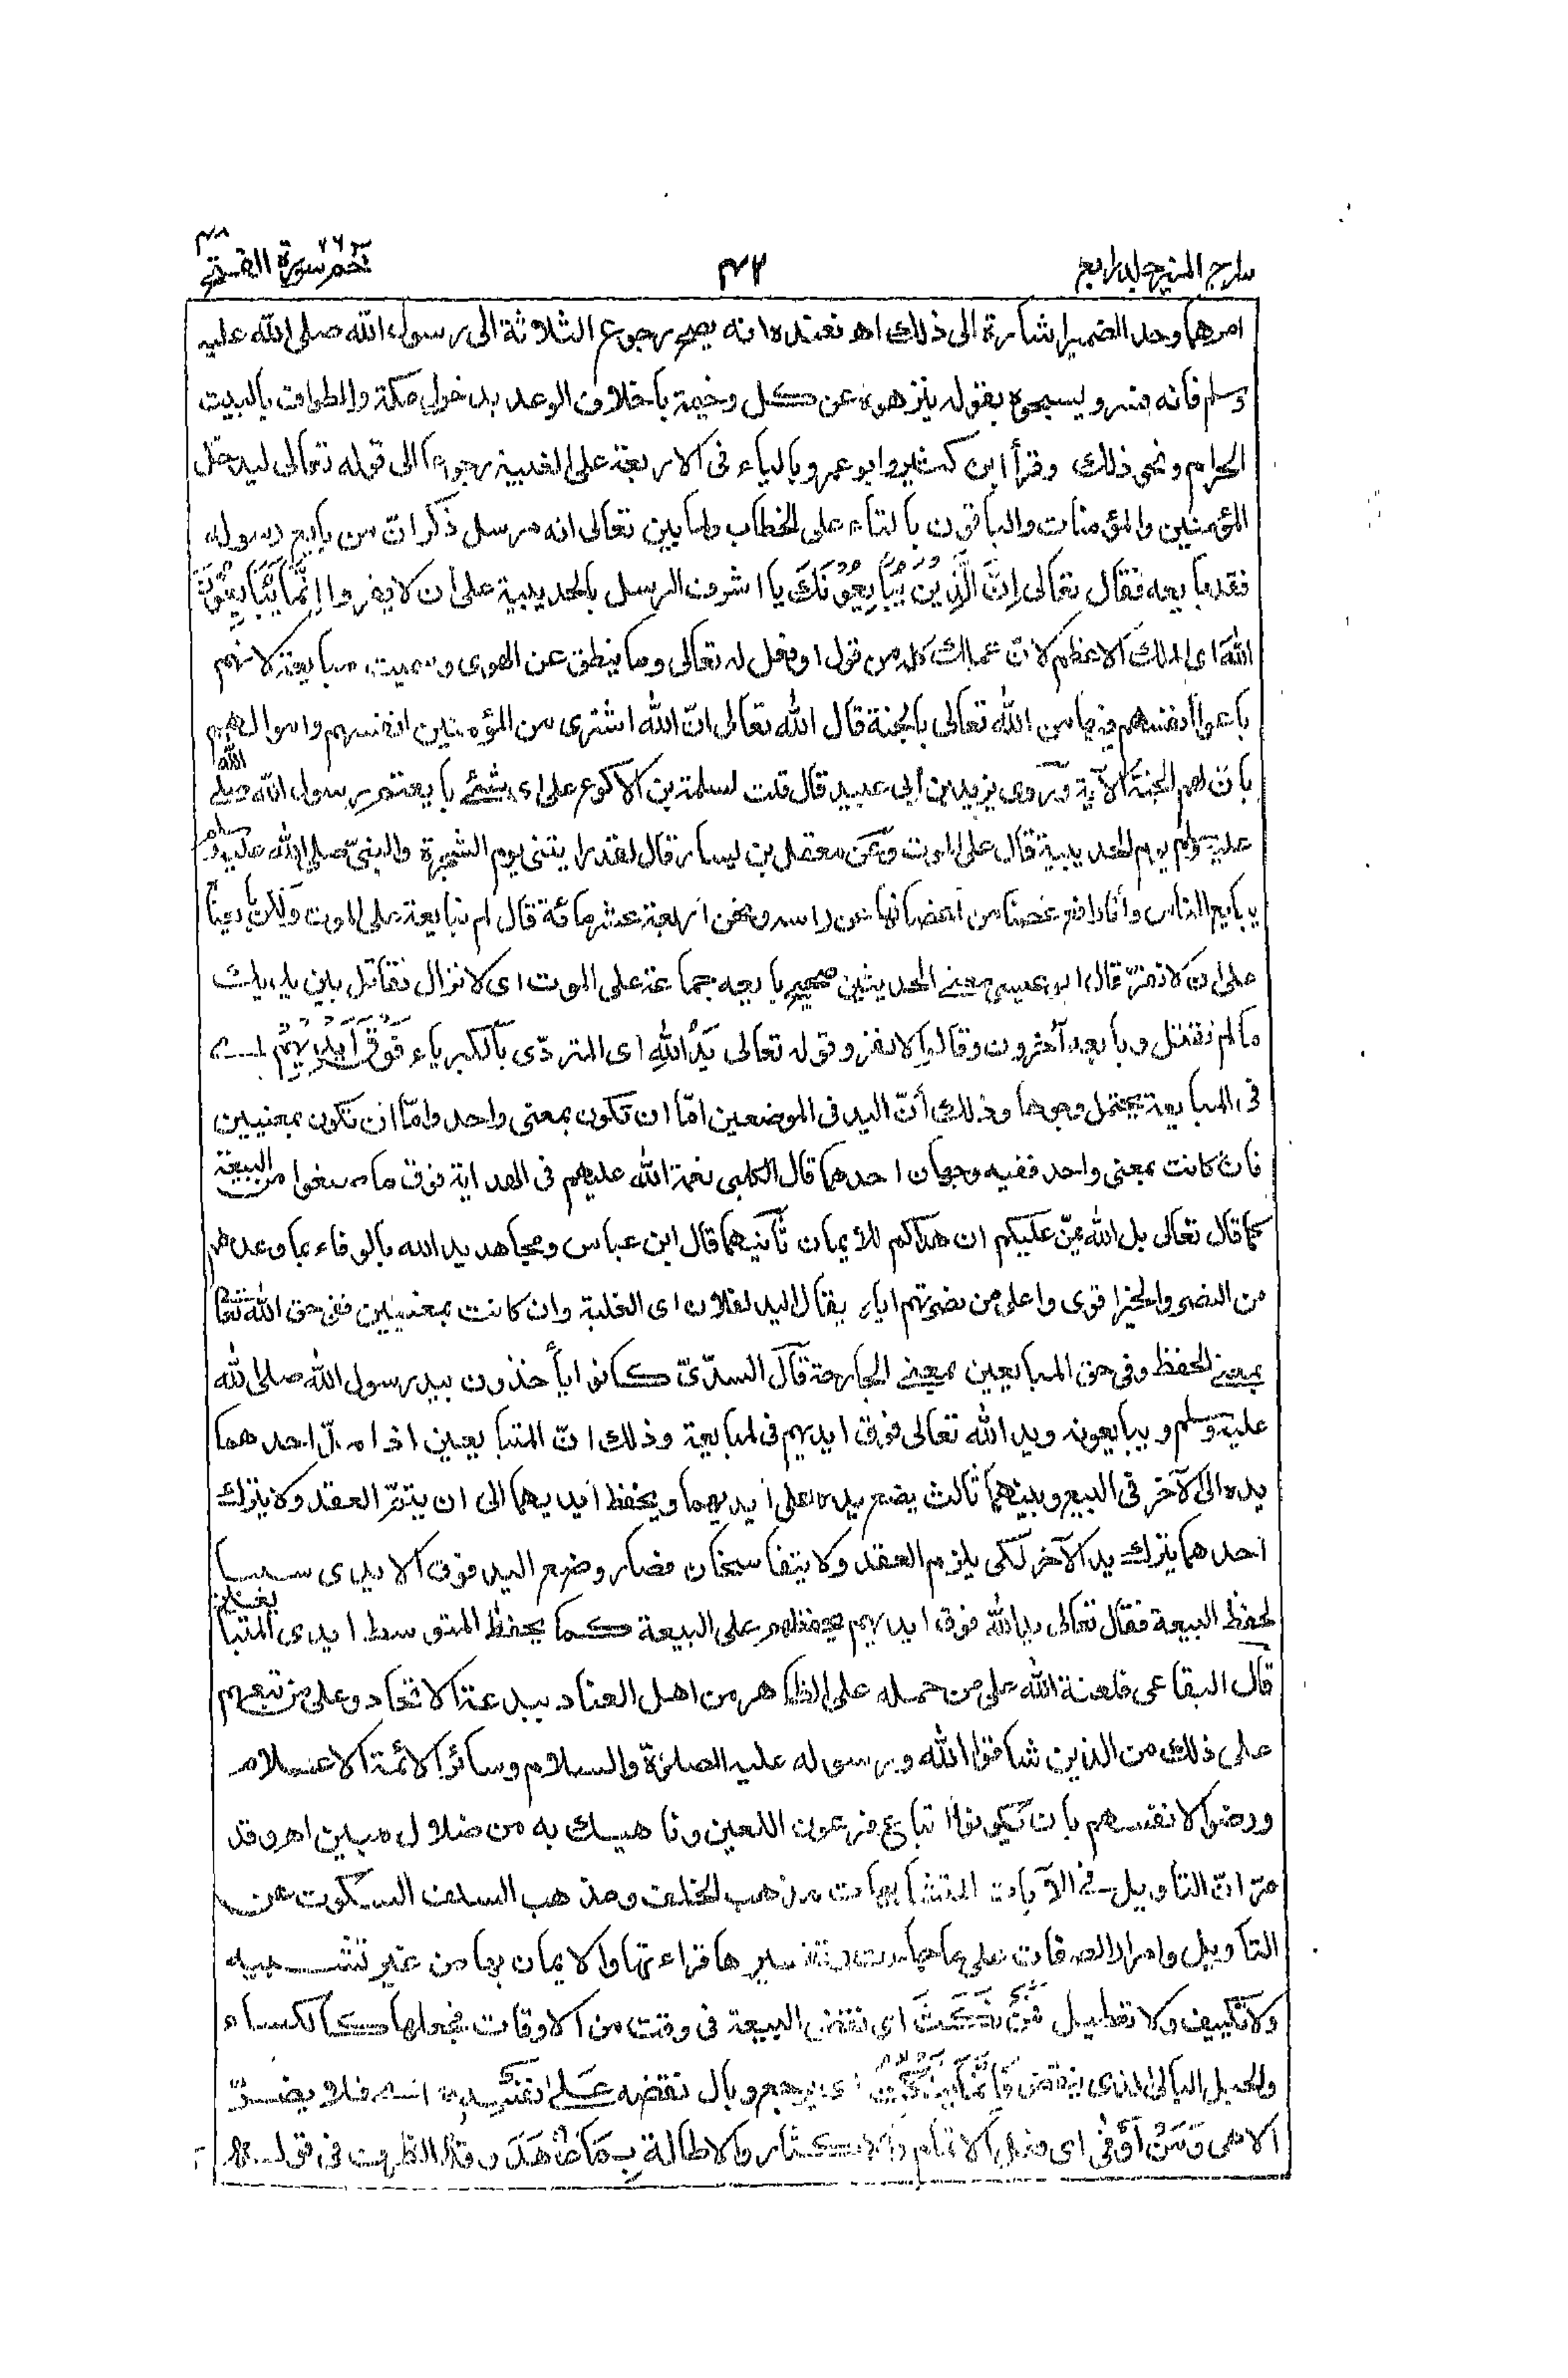 سراج المنير جلد رابع
٤٢
حٰم ٢٦ سورة الفتح ٤٨
امرهما وحد الضمير اشارة الى ذلك اهـ نعتده انه يصح رجوع الثلاثة الى رسول الله صلى الله عليه
وسلم فانه ويسبحوه بقوله ينزهوه عن كل وخيمة باخلاف الوعد بدخول مكة والطواف بالبيت
الحرام ونحو ذلك وقرأ ابن كثير وابو عمرو بالياء فى الاربعة على الغيبة رجوعا الى قوله تعالى ليدخل
المؤمنين والمؤمنات والباقون بالتاء على الخطاب ولما بين تعالى انه مرسل ذكر انّ من بايع رسوله
فقد بايعه فقال تعالى اِنَّ الَّذِيْنَ يُبَايِعُوْنَكَ يا اشرف الرسل بالحديبية على ان لا يفروا اِنَّمَا يُبَايِعُوْنَ
اللّٰهَ اى الملك الاعظم لانّ عملك كله من قول او فعل له تعالى وما ينطق عن الهوى وسميت مبايعة لانهم
باعوا أنفسهم فيها من الله تعالى بالجنة قال الله تعالى انّ الله اشترى من المؤمنين انفسهم واموالهم
بانّ لهم الجنة الآية وروى يزيد بن أبى عبيد قال قلت لسلمة بن الاكوع على اى شئ بايعتم رسول الله صلى الله
عليه وسلم يوم الحديبية قال على الموت وعن معقل بن يسار قال لقد رايتنى يوم الشجرة والنبىّ صلى الله عليه وسلم
يبايع الناس وأنا رافع غصنا من أغصانها عن راسه ونحن اربعة عشر مائة قال لم نبايعه على الموت ولكن بايعناه
على ان لا نفرّ قال ابو عيسى معنى الحديثين صحيح بايعه جماعة على الموت اى لا نزال نقاتل بين يديك
ما لم نقتل وبايعه آخرون وقالوا لا نفر وقوله تعالى يَدُ اللّٰهِ اى المتردّى بالكبرياء فَوْقَ اَيْدِيْهِمْ اى
فى المبايعة يحتمل وجوها وذلك أنّ اليد فى الموضعين امّا ان تكون بمعنى واحد وامّا ان تكون بمعنيين
فان كانت بمعنى واحد ففيه وجهان احدهما قال الكلبى نعمة الله عليهم فى الهداية فوق ما صنعوا من البيعة
كما قال تعالى بل الله يمنّ عليكم ان هداكم للايمان ثانيهما قال ابن عباس ومجاهد يد الله بالوفاء بما وعدهم
من النصر والخير اقوى واعلى من نصرتهم اياه يقال اليد لفلان اى الغلبة وان كانت بمعنيين ففى حق الله تعالى
بمعنى الحفظ وفى حق المبايعين بمعنى الجارحة قال السدّىّ كانوا يأخذون بيد رسول الله صلى الله
عليه وسلم ويبايعونه ويد الله تعالى فوق ايديهم فى المبايعة وذلك انّ المتبايعين اذا مدّ احدهما
يده الى الآخر فى البيع وبينهما ثالث يضع يده على أيديهما ويحفظ أيديهما الى ان يتمّ العقد ولا يترك
احدهما يترك يد الآخر لكى يلزم العقد ولا يتفاسخان فصار وضع اليد فوق الايدى سببا
لحفظ البيعة فقال تعالى يد الله فوق ايديهم يحفظهم على البيعة كما يحفظ المتوسط ايدى المتبايعين
قال البقاعى فلعنة الله على من حمله على الظاهر من اهل العناد ببدعة الاتحاد وعلى من تبعهم
على ذلك من الذين شاقوا الله ورسوله عليه الصلوة والسلام وسائر الائمة الاعلام
ورضوا لانفسهم بان يكونوا اتباع فرعون اللعين وناهيك به من ضلال مبين اهـ وقد
مرّ انّ التأويل فى الآيات المتشابهات مذهب الخلف ومذهب السلف السكوت عن
التأويل وامرار الصفات على ما جاءت وتفسيرها قراءتها والايمان بها من غير تشبيه
ولا تكييف ولا تعطيل فَمَنْ نَكَثَ اى نقض البيعة فى وقت من الاوقات فجعلها كالكساء
والحبل البالى الذى ينقض فَاِنَّمَا يَنْكُثُ اى يرجع وبال نقضه عَلٰى نَفْسِهٖ فلا يضرّ
الا هى وَمَنْ اَوْفٰى اى فعل الاتمام والاكثار والاطالة بِمَا عٰهَدَ وقدّم الظرف فى قوله